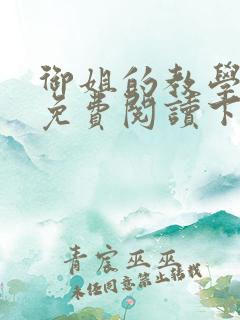 御姐的教學
免費閱讀下
青宸巫巫
未经同意禁止转载